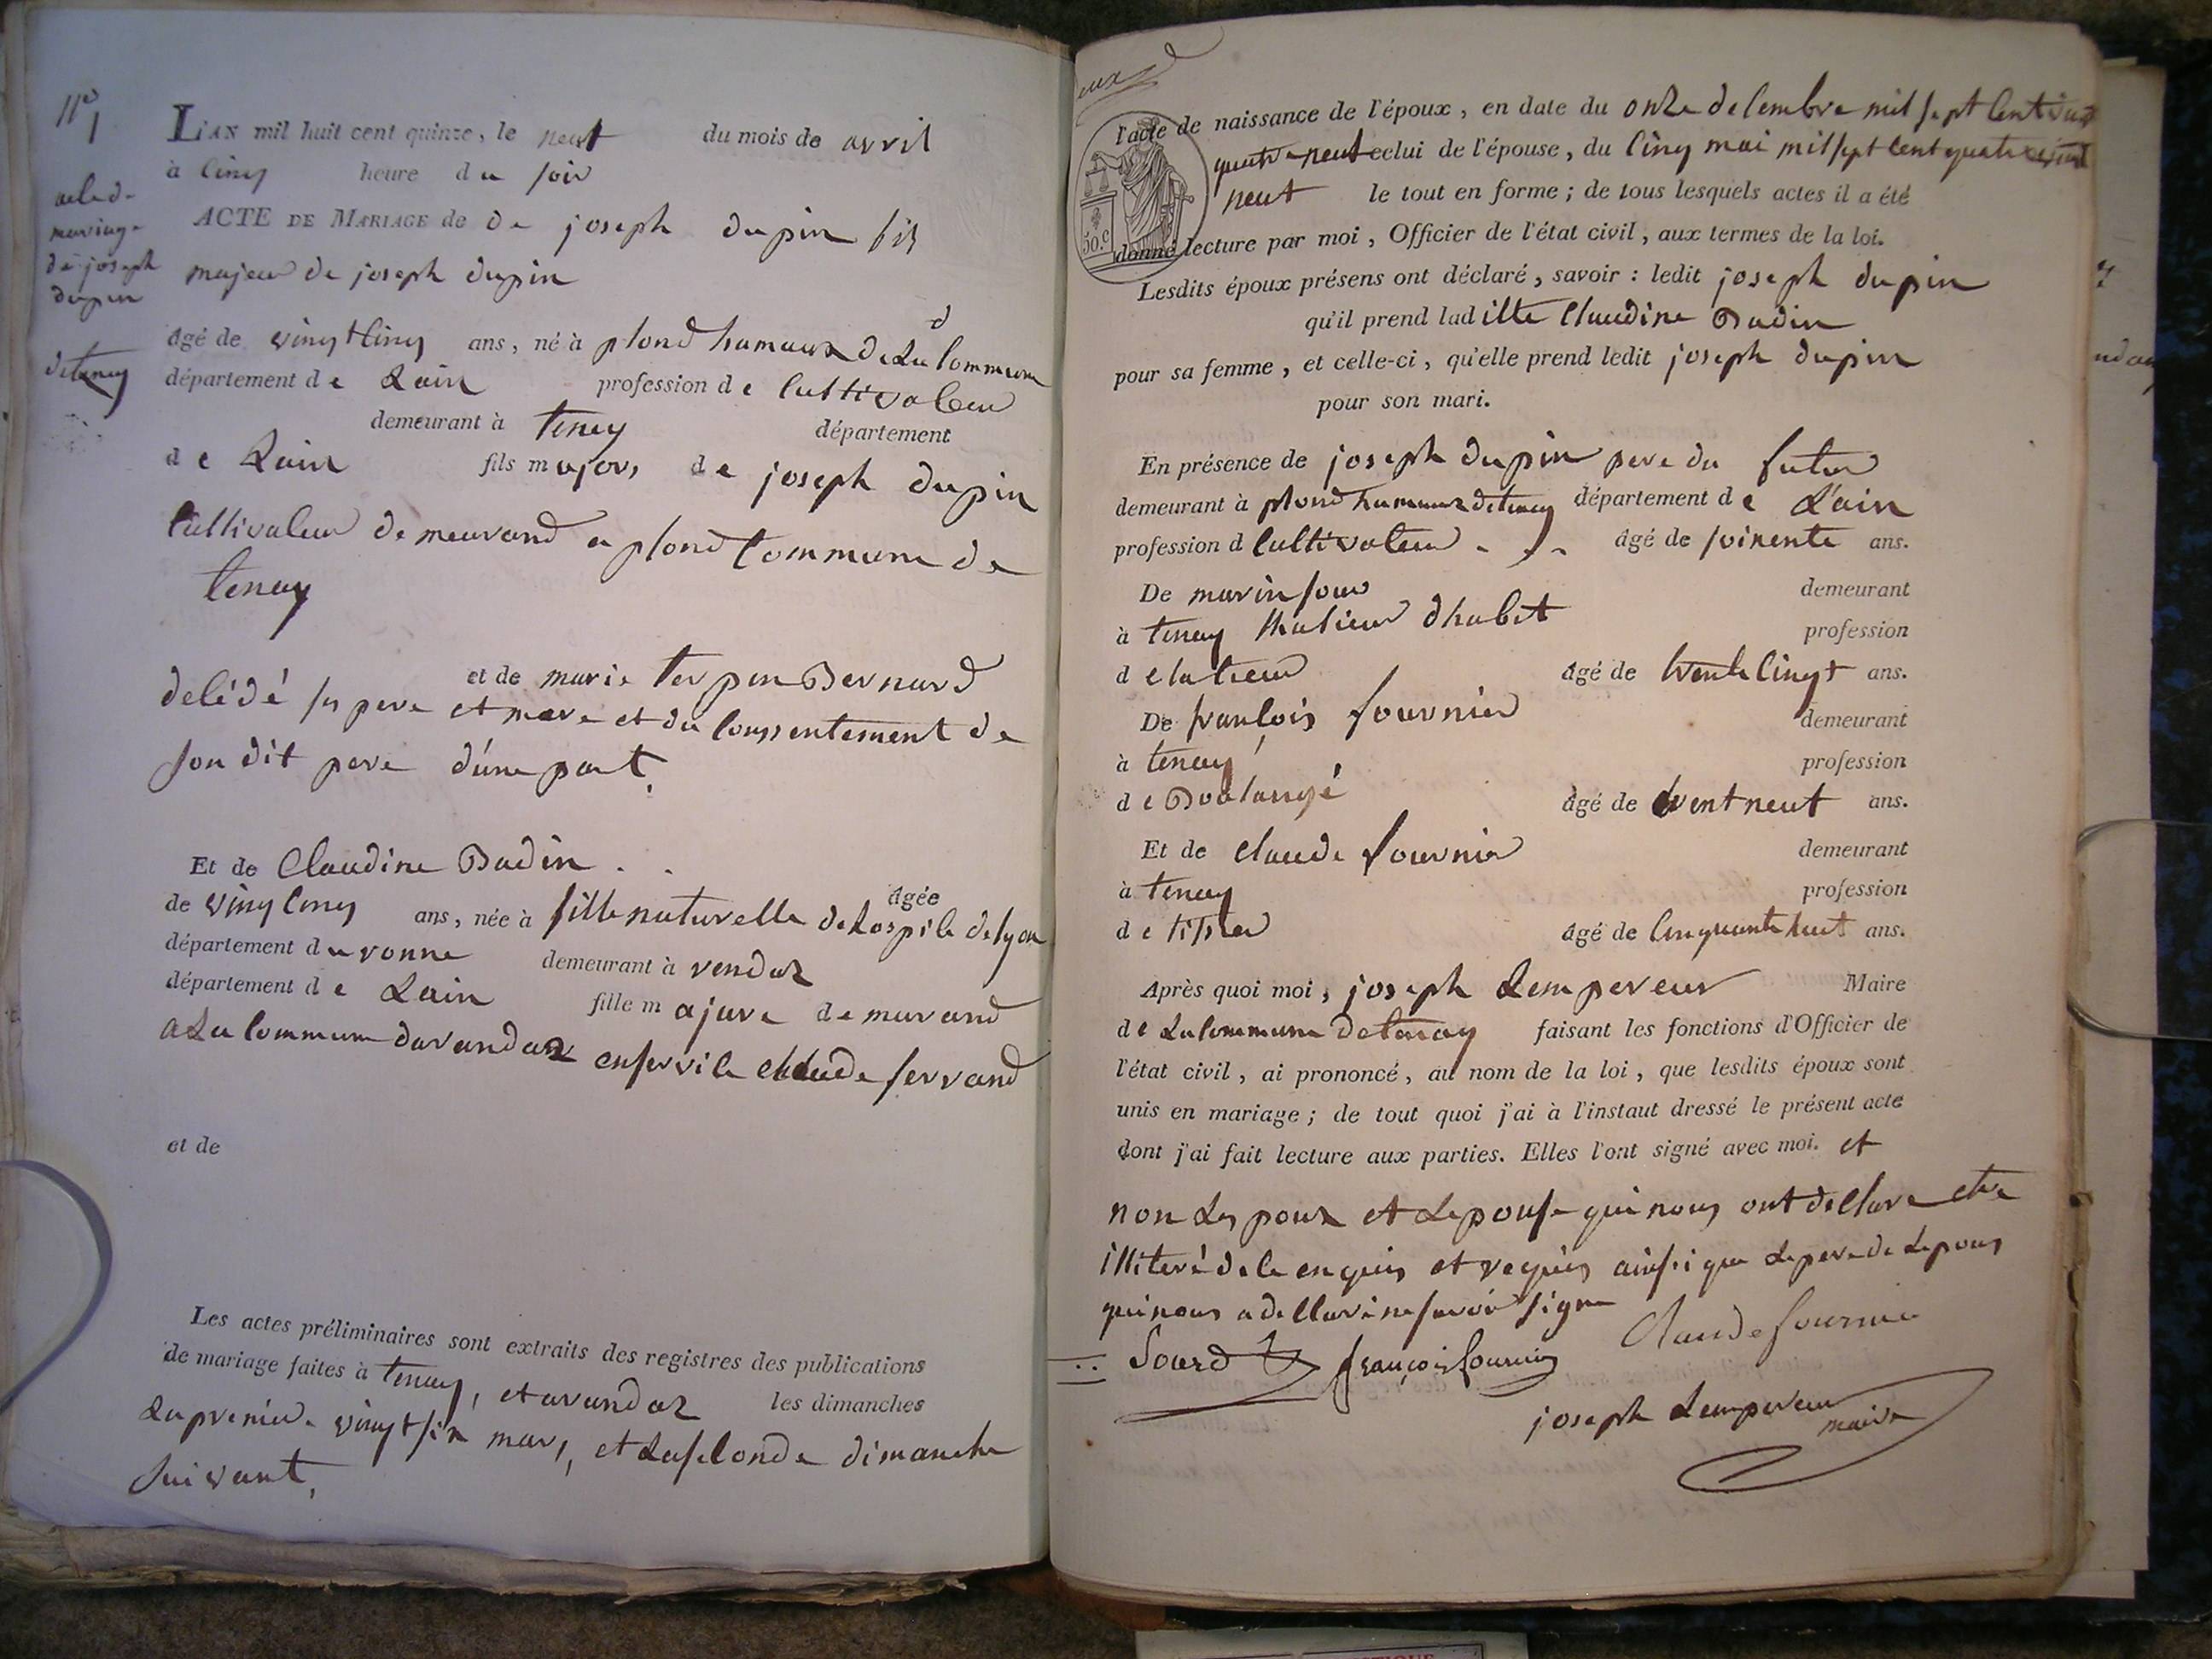 N° 1
L'AN mil huit cent quinze, le neuf du mois de avril
à cinq heure du soir
acte de
mariage
de joseph
dupin
de tenay
ACTE DE MARIAGE de de joseph dupin fils
majeur de joseph dupin
âgé de vingt cinq ans, né à plond hamaux de La commune
département de Lain profession de cultivateur
demeurant à tenay département
de Lain fils majors de joseph dupin
cultivateur demeurand a plond commune de
tenay
et de marie terpen Bernard
délédé ses pere et mere et du conssentement de
son dit pere d'une part,
Et de Claudine Badin . . âgée
de ving cinq ans, née à fille naturelle de Lospile de lyon
département du ronne demeurant à vendaz
département de Lain fille majure demurand
a La commune daranda enservile claude ferrand
et de
Les actes préliminaires sont extraits des registres des publications
de mariage faites à tenay, et arandaz les dimanches
La premiere vingt six mars, et La seconde dimanche
suivant,
deux
50.c
l'acte de naissance de l'époux, en date du onze decembre mil sept cent
quatre neuf celui de l'épouse, du cinq mai mil sept cent quatre vingt
neuf le tout en forme ; de tous lesquels actes il a été
donné lecture par moi, Officier de l'état civil, aux termes de la loi.
Lesdits époux présens ont déclaré, savoir : ledit joseph dupin
qu'il prend laditte Claudine Badin
pour sa femme, et celle-ci, qu'elle prend ledit joseph dupin
pour son mari.
En présence de joseph dupin pere du futur
demeurant à plond hamaux de tenay département de L'ain
profession d cultivateur âgé de soixente ans.
De marin sour demeurant
à tenay thalieur d'habit profession
de talieur âgé de trente cinq ans.
De francois fournier demeurant
à tenay profession
de Boulangé âgé de trent neuf ans.
Et de claude fournier demeurant
à tenay profession
de tissier âgé de cinquante huit ans.
Après quoi moi, joseph Lempereur Maire
de La commune de tenay faisant les fonctions d'Officier de
l'état civil, ai prononcé, au nom de la loi, que lesdits époux sont
unis en mariage ; de tout quoi j'ai à l'instaut dressé le présent acte
dont j'ai fait lecture aux parties. Elles l'ont signé avec moi. et
non Les poux et Lepouse qui nous ont declare etre
illiteré de le enquis et requis ainssi que Le pere de Lepoux
qui nous a declare ne savoir signe
Sourd françois fournier Claude fournier
joseph Lempereur
maire